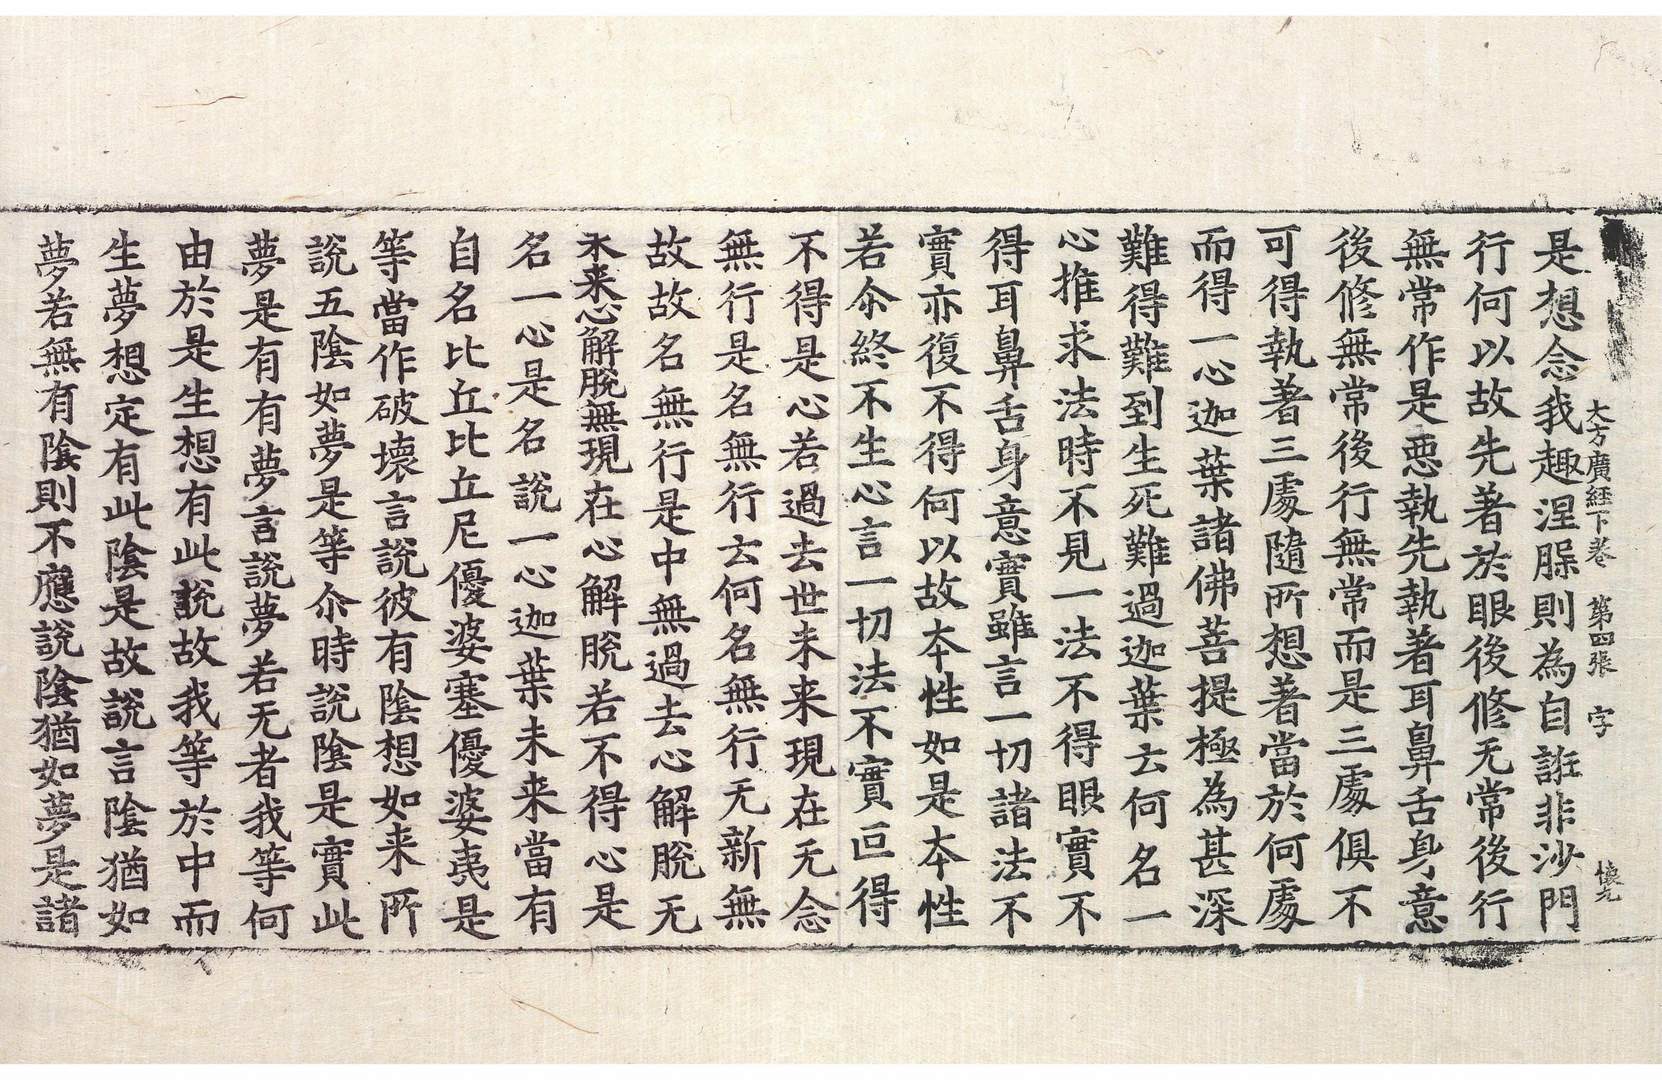 大方廣経下卷 第四張 字 懐元
是想念我趣涅槃則為自誑非沙門
行何以故先著於眼後修无常後行
無常作是惡執先執著耳鼻舌身意
後修無常後行無常而是三處俱不
可得執著三處隨所想著當於何處
而得一心迦葉諸佛菩提極為甚深
難得難到生死難過迦葉云何名一
心推求法時不見一法不得眼實不
得耳鼻舌身意實雖言一切諸法不
實亦復不得何以故本性如是本性
若尒終不生心言一切法不實叵得
不得是心若過去世未来現在无念
無行是名無行云何名無行无新無
故故名無行是中無過去心解脫无
未来心解脫無現在心解脫若不得心是
名一心是名說一心迦葉未来當有
自名比丘比丘尼優婆塞優婆夷是
等當作破壊言說彼有陰想如来所
說五陰如夢是等尒時說陰是實此
夢是有有夢言說夢若无者我等何
由於是生想有此說故我等於中而
生夢想定有此陰是故說言陰猶如
夢若無有陰則不應說陰猶如夢是諸